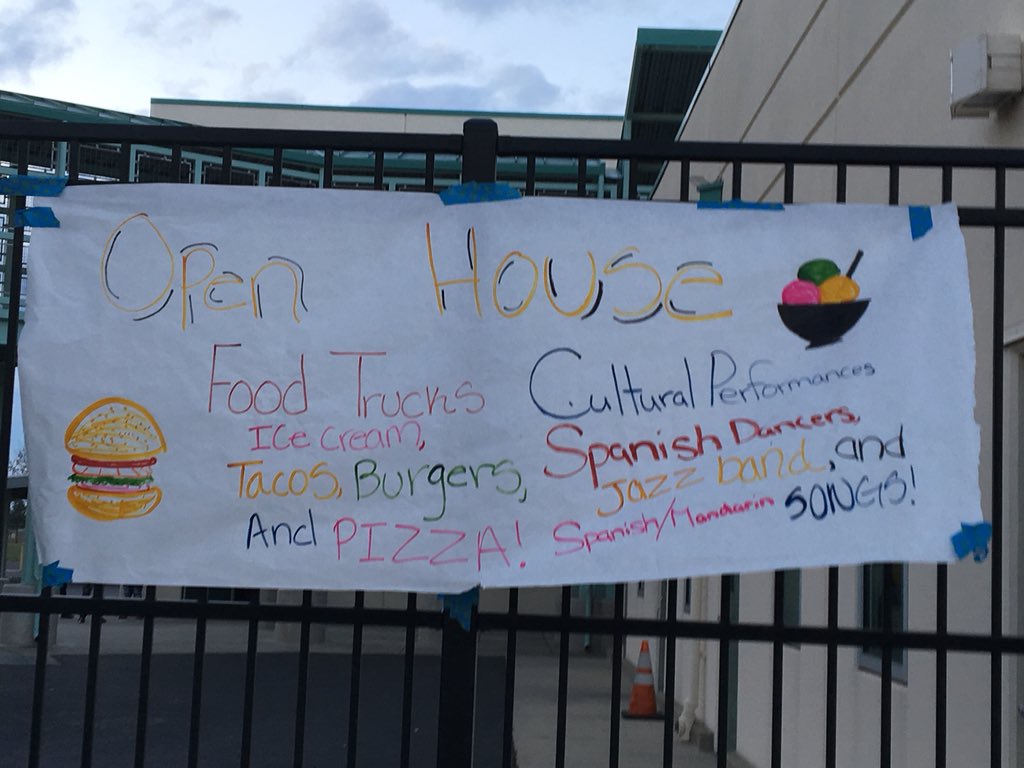 Open House
Food Trucks
Ice cream,
Tacos, Burgers,
And PIZZA!
Cultural Performances
Spanish Dancers,
Jazz band, and
Spanish/Mandarin SONGS!